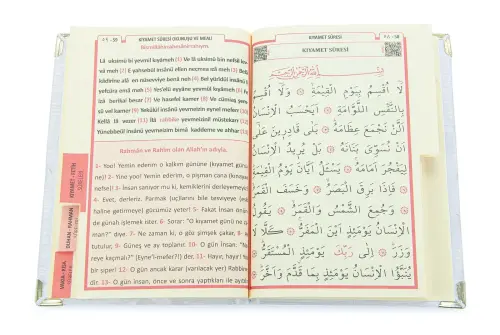 ٥٩ - 59
KIYAMET SÛRESİ OKUNUŞU VE MEALİ
Bismillâhirrahmânirrahîym.
Lâ uksimü bi yevmil kıyâmeh (1) Ve lâ uksimü bin nefsil levvâ
meh (2) E yahsebül insânü ellen necmea ızâ meh (3) Belâ
kâdirîne alâ en nüsevviye benâ neh (4) Bel yürîdül insânü li
yefcüra emâ meh (5) Yes'elü eyyâne yevmül kıyâmeh (6) Fe
izâ berikal besar (7) Ve hasefel kamer (8) Ve cümiaş şem
sü vel kamer (9) Yekûlül insânü yevmeizin eynel mefer (10)
Kellâ lâ vezer (11) İlâ rabbike yevmeizinil müstekar (12)
Yünebbeül insânü yevmeizim bimâ kaddeme ve ahhar (13)
Rahmân ve Rahîm olan Allah'ın adıyla.
1- Yoo! Yemin ederim o kalkım gününe (kıyamet gü
ne)! 2- Yine Yemin ederim, o pişman cana (kınayan
nefse)! 3- İnsan sanıyor mu ki, kemiklerini derleyemeyiz?
4- Evet, derleriz. Parmak (uç)larını bile tesviyeye (eski
haline getirmeye) gücümüz yeter! 5- Fakat İnsan önünde
de günah işlemek ister. 6- Sorar: "O kıyamet günü ne za
man?" diye. 7- Ne zaman ki, o göz şimşek çakar, 8-
tutulur, 9- Güneş ve ay toplanır. 10- O gün İnsan, "Ne
reye kaçmalı? (Eyne'l-mefer?!) der. 11- Hayır, hayır! Yok
bir siper! 12- O gün ancak karar (varılacak yer) Rabbine
dir. 13- O gün İnsan, önce ve sonra yaptıkları ile aytılır
KIYAMET - FETİH
DUHAN - RAHMAN
VAKIA - KAF
٥٨ - 58
KIYAMET SÛRESİ
KIYAMET SÛRESİ
بِسْمِ اللّٰهِ الرَّحْمٰنِ الرَّحِيمِ
لَا اُقْسِمُ بِيَوْمِ الْقِيٰمَةِ وَلَا اُقْسِمُ
بِالنَّفْسِ اللَّوَّامَةِ اَيَحْسَبُ الْاِنْسَانُ
اَلَّنْ نَجْمَعَ عِظَامَهُ بَلٰى قَادِرِينَ عَلٰى
اَنْ نُسَوِّىَ بَنَانَهُ بَلْ يُرِيدُ الْاِنْسَانُ
لِيَفْجُرَ اَمَامَهُ يَسْئَلُ اَيَّانَ يَوْمُ الْقِيٰمَةِ
فَاِذَا بَرِقَ الْبَصَرُ وَخَسَفَ الْقَمَرُ
وَجُمِعَ الشَّمْسُ وَالْقَمَرُ يَقُولُ
الْاِنْسَانُ يَوْمَئِذٍ اَيْنَ الْمَفَرُّ كَلَّا لَا
وَزَرَ اِلٰى رَبِّكَ يَوْمَئِذٍ الْمُسْتَقَرُّ
يُنَبَّؤُا الْاِنْسَانُ يَوْمَئِذٍ بِمَا قَدَّمَ وَاَخَّرَ